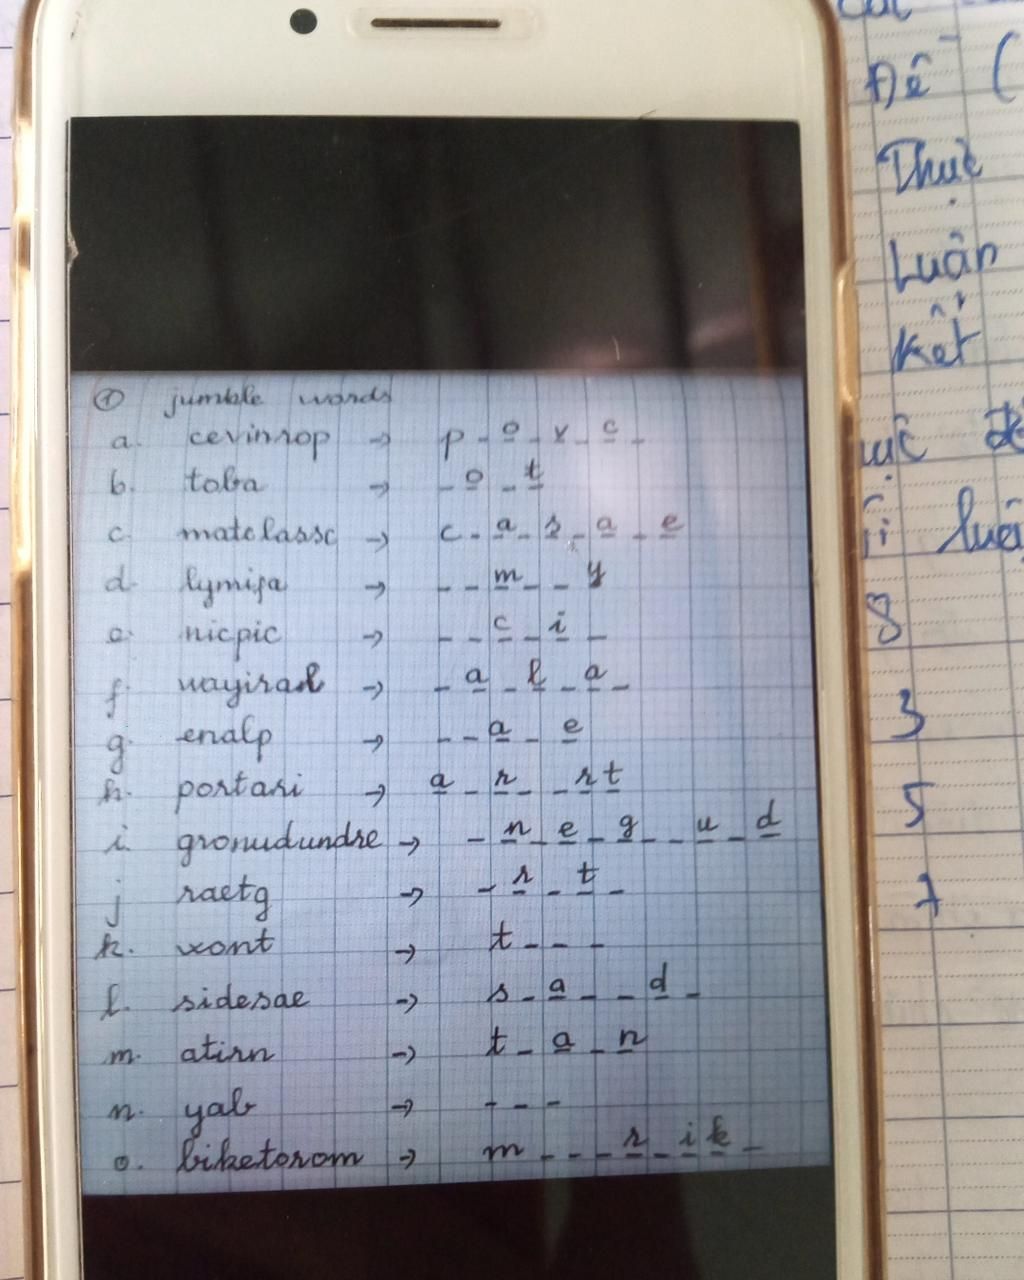 ① jumble words
a. cevinrop → p _ o _ v _ c _
b. toba → _ o _ t
c. matclassc → c _ a _ s _ a _ e
d. lymifa → _ _ m _ _ y
e. nicpic → _ _ c _ i _
f. wayirarl → _ a _ l _ a _
g. enalp → _ _ a _ e
h. portari → a _ r _ _ r t
i. gronudundre → _ n _ e _ g _ _ u _ d
j. raetg → _ r _ t _
k. wont → t _ _ _
l. sidesae → s _ a _ _ d _
m. atirn → t _ a _ n
n. yab → _ _ _
o. biketorom → m _ _ _ r _ i k _
Đề (
Thức
Luận
Kết
luậ
8
3
5
7